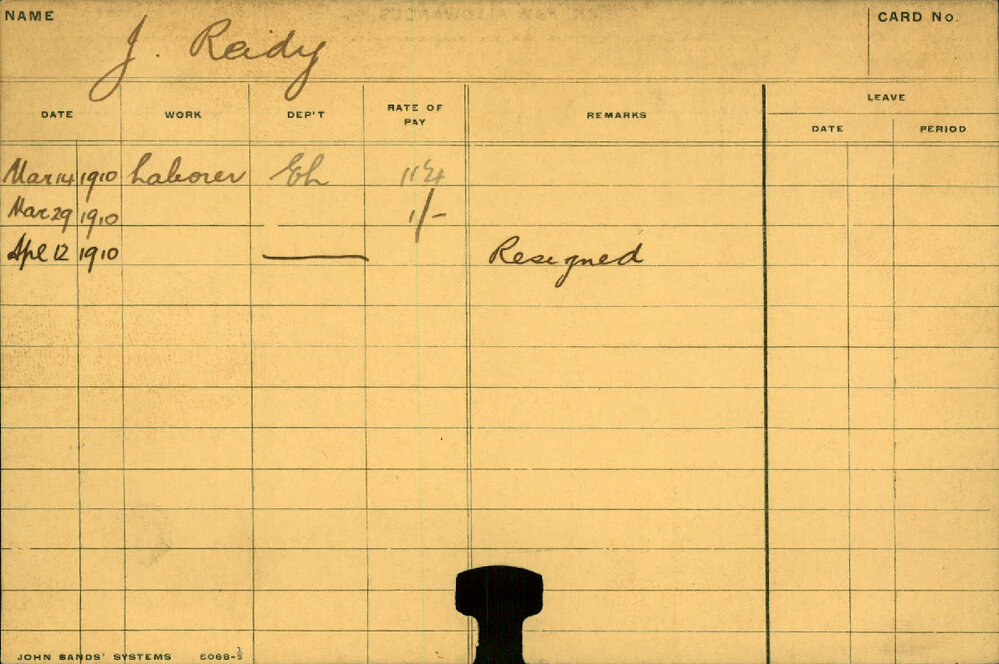 NAME J. Reidy CARD No.
DATE WORK DEP'T RATE OF PAY REMARKS LEAVE
DATE PERIOD
Mar 14 1910 Laborer Eh
Mar 29 1910 1/-
Apl 12 1910 Resigned
JOHN SANDS' SYSTEMS